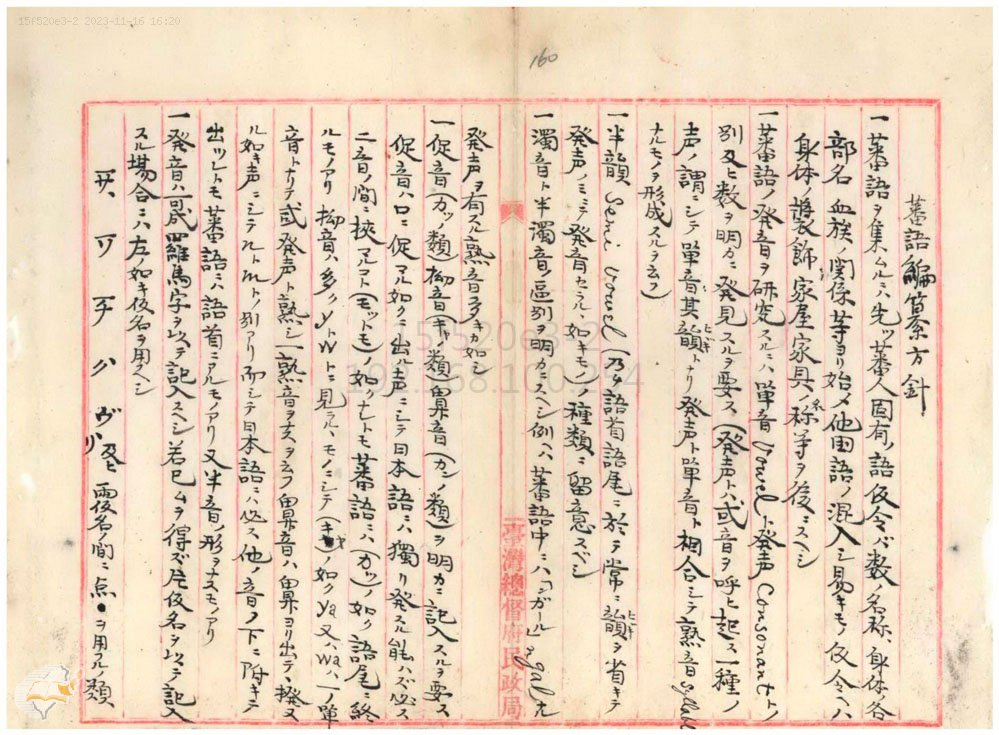 15f520e3-2 2023-11-16 16:20
160
蕃語編纂方針
一蕃語ヲ集ムルニハ先ツ蕃人固有ノ語仮令バ数ノ名称、身体各
部名血族ノ関係等ヨリ始メ他国語ノ混入シ易キモノ仮令ヘハ
身体ノ装飾家屋家具ノ称等ヲ後ニスヘシ
一蕃語ノ発音ヲ研究スルニハ単音Vowelト発声Consonantトノ
別及ヒ数ヲ明カニ発見スルヲ要ス(発声トハ或音ヲ呼ヒ起ス一種ノ
声ノ謂ニシテ単音其韻トナリ発声ト単音ト相合シテ熟音
ナルモノヲ形成スルヲ云フ)
一半韻Semi vowel(乃チ語首語尾ニ於テ常ニ韻ヲ省キテ
発声ノミニテ発音セラルヽ如キモノ)ノ種類ニ留意スベシ
一濁音ト半濁音ノ区別ヲ明カニスヘシ例ヘハ蕃語中ニハ「ンガール」galナル
発声ヲ有スル熟音多キカ如シ
一促音(カッノ類)拗音(キャノ類)鼻音(カンノ類)ヲ明カニ記入スルヲ要ス
促音ハ口ニ促マル如クニ出ル声ニシテ日本語ニハ独リ発スル能ハズ必ス
二音ノ間ニ挟マルコト(モットモ)ノ如クナレトモ蕃語ニハ(カッ)ノ如ク語尾ニ終
ルモノアリ拗音ハ多クyトwトニ見ラルヽモノニシテ(キャ)ノ如クya又ハwaハ一ノ単
音トナリテ或発声ト熟シ一熟音ヲナスヲ云フ鼻音ハ鼻ヨリ出テヽ撥ヌ
ル如キ声ニシテnトmトノ別アリ而シテ日本語ニハ必ス他ノ音ノ下ニ附キテ
出ツレトモ蕃語ニハ語首ニアルモノアリ又半音ノ形ヲナスモノアリ
一発音ハ可成羅馬字ヲ以テ記入スヘシ若已ムヲ得ズ片仮名ヲ以テ記入
スル場合ニハ左ノ如キ仮名ヲ用スヘシ
サ ツ チ ハ ヴ 及ヒ仮名ノ間ニ点・ヲ用フルノ類
臺灣總督府民政局
15f520e3-2